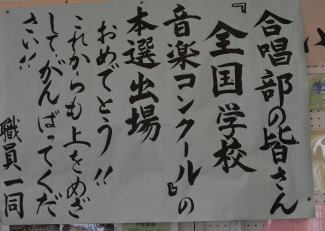 合唱部の皆さん
『全国学校
音楽コンクール』の
本選出場
おめでとう!!
これからも上をめざ
してがんばってくだ
さい!!
職員一同